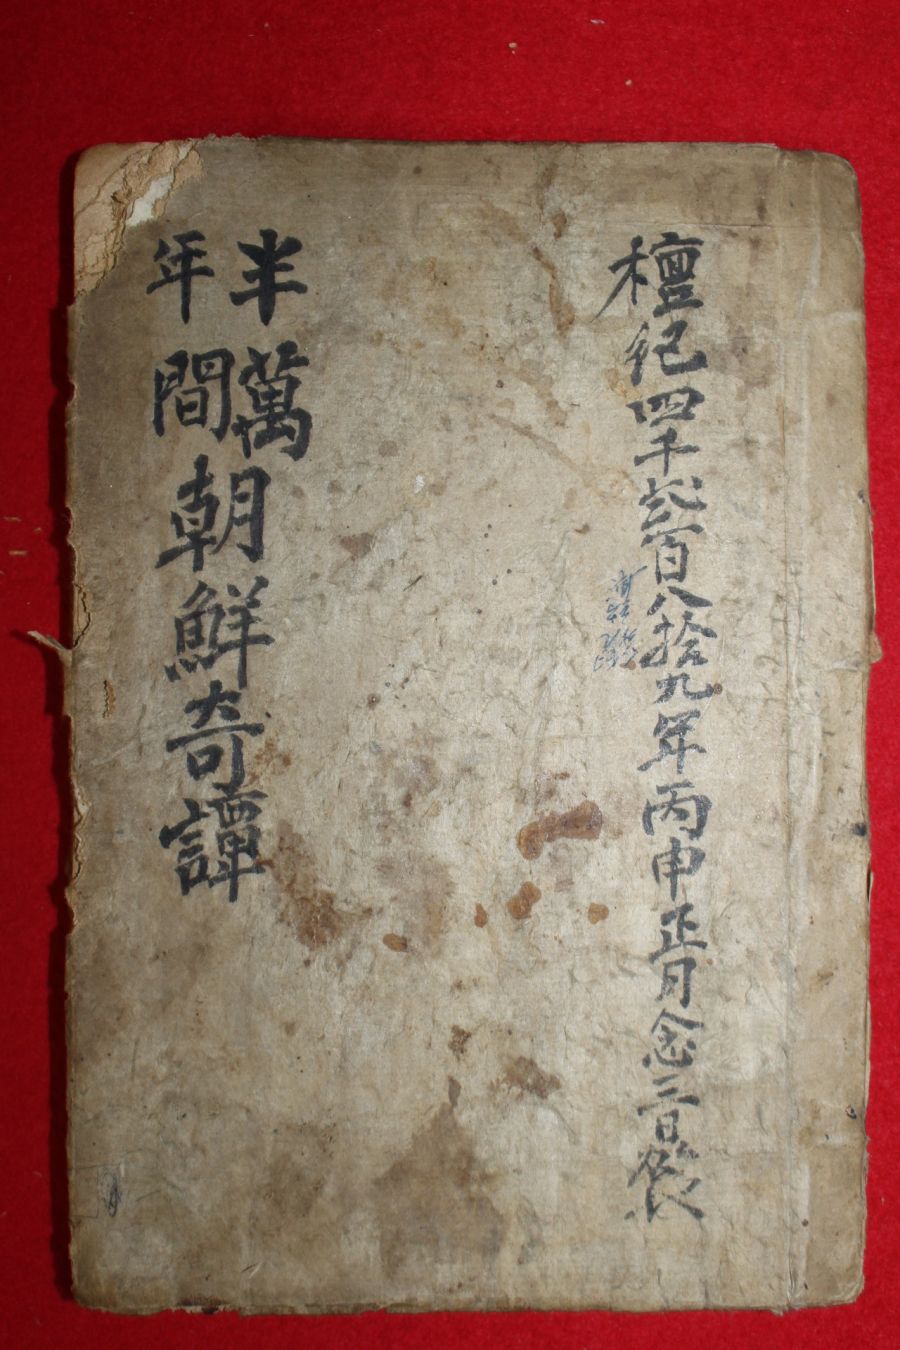 檀紀四千貳百八拾九年丙申正月念三日
半萬
年間
朝鮮奇譚